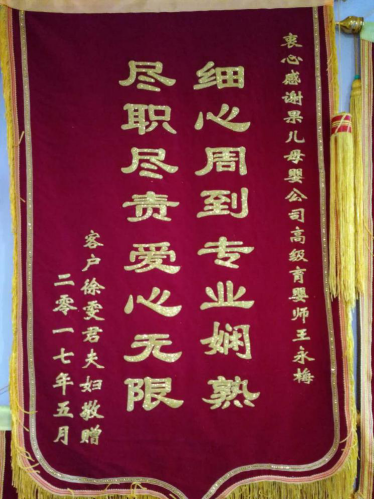 衷心感谢果儿母婴公司高级育婴师王永梅
细心周到专业娴熟
尽职尽责爱心无限
客户徐雯君夫妇敬赠
二零一七年五月